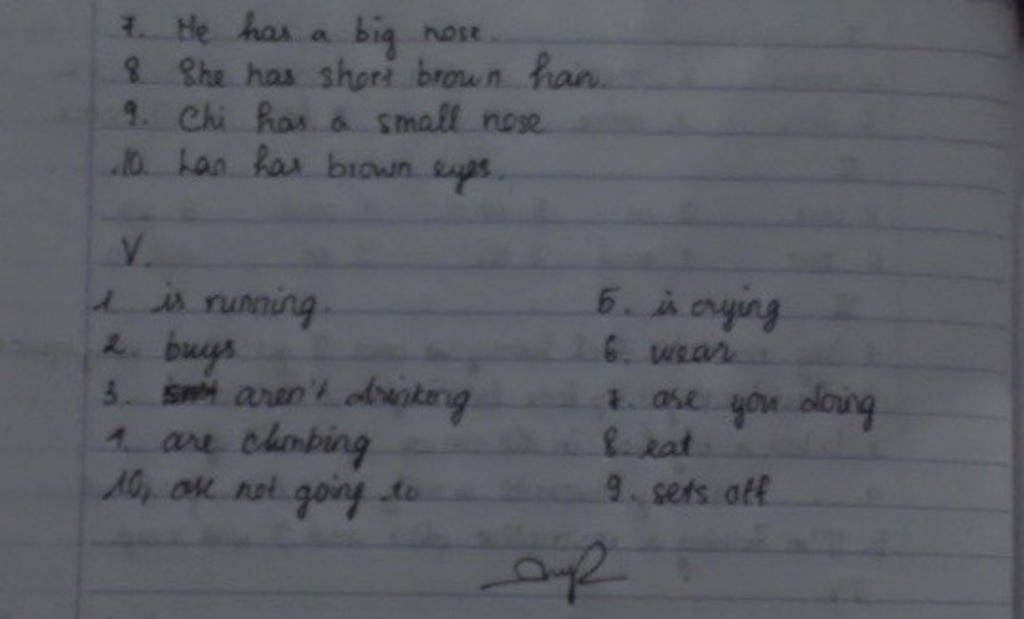 7. He has a big nose.
8. She has short brown hair.
9. Chi has a small nose
10. Lan has brown eyes.
V.
1. is running.
2. buys
3. aren't drinking
4. are climbing
10, are not going to
5. is crying
6. wear
7. are you doing
8. eat
9. sets off